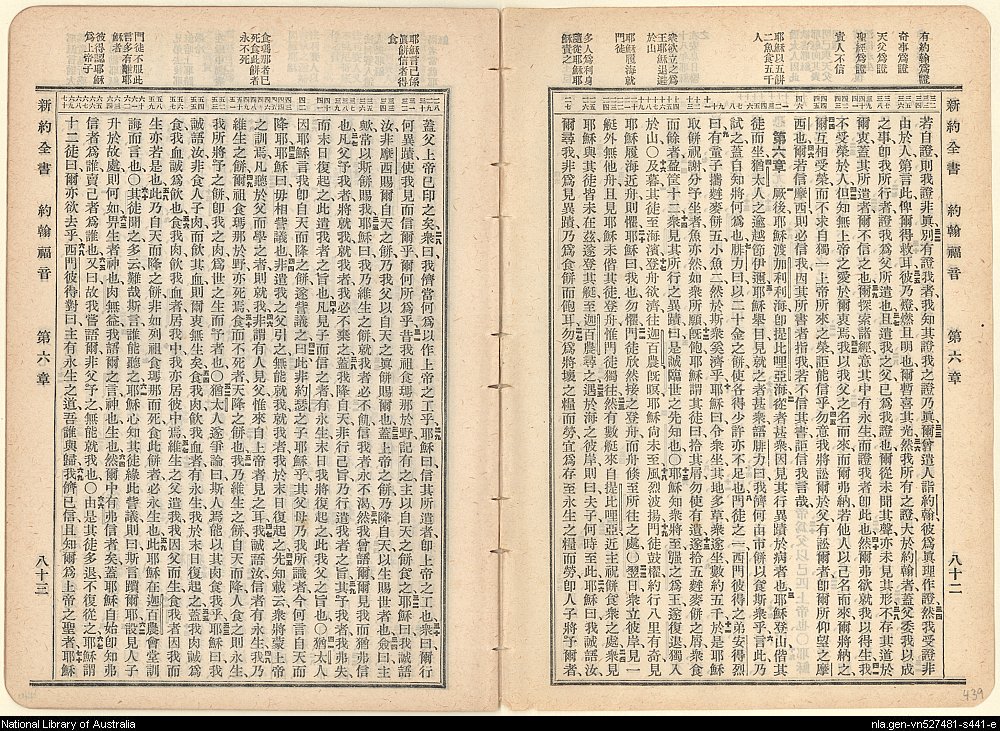 有約翰爲證
奇事爲證
天父爲證
聖經爲證
責人不信
耶穌以五餅
二魚食五千
人
衆欲立之爲
王耶穌退避
於山
耶穌履海就
門徒
多人爲利身
隨從耶穌耶
穌責之
新約全書 約翰福音 第六章 八十二
若自證則我證非眞別有證我者我知其證我之證乃眞爾曾遣人詣約翰彼爲眞理作證然我受證非
由於人第言此俾爾得救耳彼乃燈燃且明也爾暫喜其光然我所有之證大於約翰者蓋父委我以成
之事卽我所行者證我爲父所遣也且遣我之父已爲我證也爾從未聞其聲亦未見其形不存其道於
爾衷蓋其所遣者爾不信之也爾探索諸經意其中有永生而證我者卽此也然爾弗欲就我以得生我
不受榮於人但知無上帝之愛於爾衷焉我以我父之名而來而爾弗納若他人以己名而來爾將納之
爾互相受榮而不求自獨一上帝所來之榮詎能信乎勿意我將訟爾於父有訟爾者卽爾所仰望之摩
西也爾若信摩西則必信我因其所書者指我若不信其書詎信我言哉
第六章 厥後耶穌渡加利利海卽提比哩亞海從者甚衆因見其行異蹟於病者也耶穌登山偕其
徒坐焉猶太人之逾越節伊邇耶穌舉目見就之者甚衆謂腓力曰我儕何由市餅以食斯衆乎言此乃
試之蓋自知將何爲也腓力曰以二十金之餅使各得少許亦不足也門徒之一西門彼得之弟安得烈
曰有童子攜麰麥餅五小魚二然於斯衆奚濟乎耶穌曰令衆坐其地多草衆遂坐數約五千於是耶穌
取餅祝謝分予坐者魚亦然如衆所願旣飽耶穌謂其徒曰拾其屑勿使有遺遂拾五麰麥餅食衆之屑
而餘者盈筐十二衆見其所行之異蹟曰是誠臨世之先知也〇耶穌知衆將至强之爲王遂復退獨入
於山〇及暮其徒至海濱登舟欲濟往迦百農旣暝耶穌尙未至風烈波揚門徒鼓櫂約行八里有奇見
耶穌履海近舟則懼耶穌曰我也勿懼門徒欣然接之登舟而舟倐至所往之處〇翌日衆立彼岸見一
艇外無他舟且見耶穌未偕其徒登舟惟門徒獨往然有數艇來自提比哩亞近主祝謝食衆餅之處衆見
耶穌與其徒皆未在遂登其艇至迦百農尋之遇於海之彼岸則曰夫子何時至此耶穌曰我誠語汝
爾尋我非爲見異蹟乃爲食餅而飽耳勿爲將壞之糧而勞宜爲存至永生之糧而勞卽人子將予爾者
439
耶穌言己係
眞餅信者得
食
食瑪那者已
死食此餅者
永不死
門徒不服此
言多有離耶
穌者
彼得認耶穌
爲上帝子
蓋父上帝已印之矣衆曰我儕當何爲以作上帝之工乎耶穌曰信其所遣者卽上帝之工也衆曰爾行
何異蹟使我見而信爾乎爾何所爲乎昔我祖食瑪那於野記有之主以自天之餅食之耶穌曰我誠語
汝非摩西賜爾自天之餅乃我父以自天之眞餅賜爾也蓋上帝之餅乃降自天以生賜世者也僉曰主
歟常以斯餅賜我耶穌曰我乃維生之餅就我者必不飢信我者永不渴然我嘗語爾爾見我而猶弗信
也凡父予我者將就我就我者我必不棄之蓋我降自天非行己旨乃行遣我者之旨其予我者我弗失
而末日復起之此遣我者之旨也凡見子而信之者有永生末日我將復起之此我父之旨也〇猶太人
因耶穌言我卽自天而降之餅遂訾議之曰此非約瑟之子耶穌乎其父母乃我所識者今何言自天而
降耶耶穌曰毋相訾議也非遣我之父引之無能就我就我者我於末日復起之先知載云衆將蒙上帝
之訓焉凡聽於父而學之者則就我非謂有人見父惟來自上帝者見之耳我誠語汝信者有永生我乃
維生之餅爾祖食瑪那於野亦死焉食而不死者天降之餅也我乃維生之餅自天而降人食之則永生
我所將予之餅卽我之肉爲世之生而予者也〇猶太人遂爭論曰斯人焉能以其肉食我乎耶穌曰我
誠語汝非食人子肉而飲其血則爾衷無生矣食我肉飲我血者有永生我於末日復起之蓋我肉誠爲
食我血誠爲飲也食我肉飲我血者居我中我亦居彼中焉維生之父遣我我因父而生食我者因我而
生亦若是也此乃自天而降之餅非如列祖食瑪那而死食此餅者必永生也此耶穌在迦百農會堂訓
誨而言也〇其徒聞之多云難哉斯言誰能聽之耶穌心知其徒緣此訾議則曰斯言躓爾耶設見人子
升於故處則何如畀生者神也肉無益我語爾之言神也生也然爾中有弗信者矣蓋耶穌自始卽知弗
信者爲誰賣己者爲誰也又曰故我嘗語爾非父予之無能就我也〇由是其徒多退不復從之耶穌謂
十二徒曰爾亦欲去乎西門彼得對曰主有永生之道吾誰與歸我儕已信且知爾爲上帝之聖者耶穌
新約全書 約翰福音 第六章 八十三
National Library of Australia
nla.gen-vn527481-s441-e